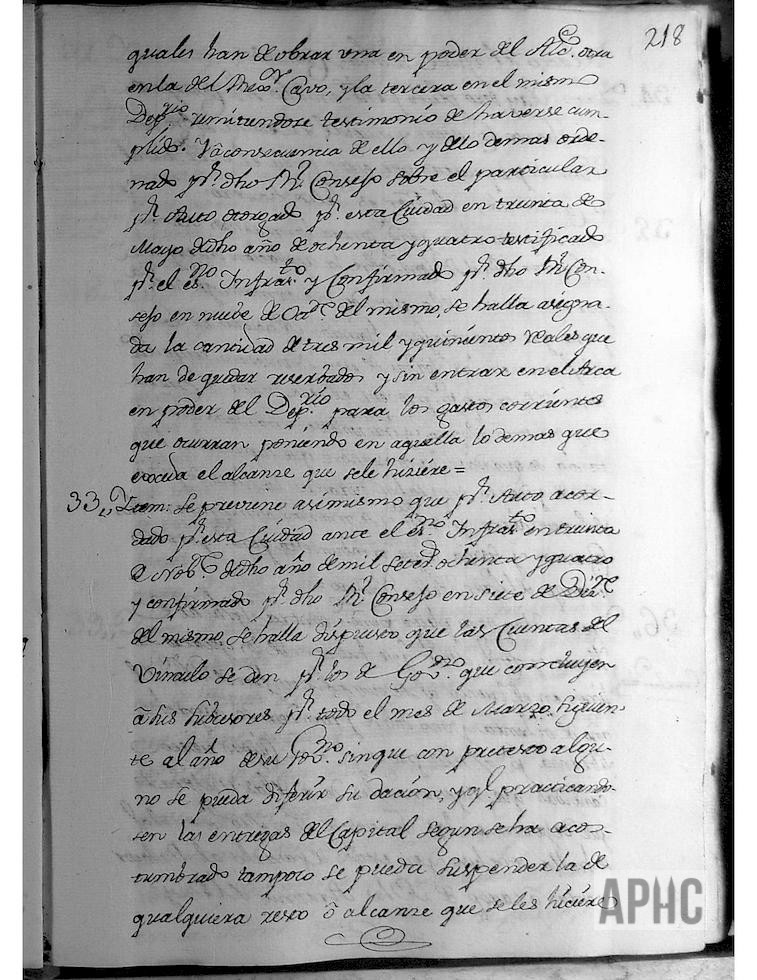 218
quales han de obrar una en poder del Alc.e otra
en la del Theso.ro Cavo, y la tercera en el mismo
Dep.rio remitiendose testimonio de haverse cum-
plido. Yâ consecuencia de ello y de lo demas orde-
nado p.r dho Rl. Consejo sobre el particular
p.r Auto otorgado p.r esta Ciudad en treinta de
Mayo de dho año de ochenta y quatro testificado
p.r el es.no Infras.to y Confirmado p.r dho Rl. Con-
sejo en nueve de del mismo, se halla asigna-
da la cantidad de tres mil y quinientos Reales que
han de quedar reserbados y sin entrar en el Arca
en poder del Dep.rio para los gastos corrientes
que ocurran poniendo en aquella lo demas que
exceda el alcanze que sele hiziére =
33,, Item: Se previene asimismo que p.r Auto acor-
dado p.r esta Ciudad ante el es.no Infras.to en treinta
de Nob.e de dho año de mil setec.s ochenta y quatro
y confirmado p.r dho Rl. Consejo en siete de Diz.e
del mismo, se halla dispuesto que las Cuentas del
Vinculo se den p.r los de Gov.no que concluyen
â sus subcesores p.r todo el mes de Marzo siguien-
te al añ de su Gov.no sin que con pretesto algu-
no se pueda diferir su dación, y q.l practicando-
sen las entregas del Capital segun se ha acos-
tumbrado tampoco se pueda suspender la de
qualquiera resto ô alcanze que se les hiciére
APHC